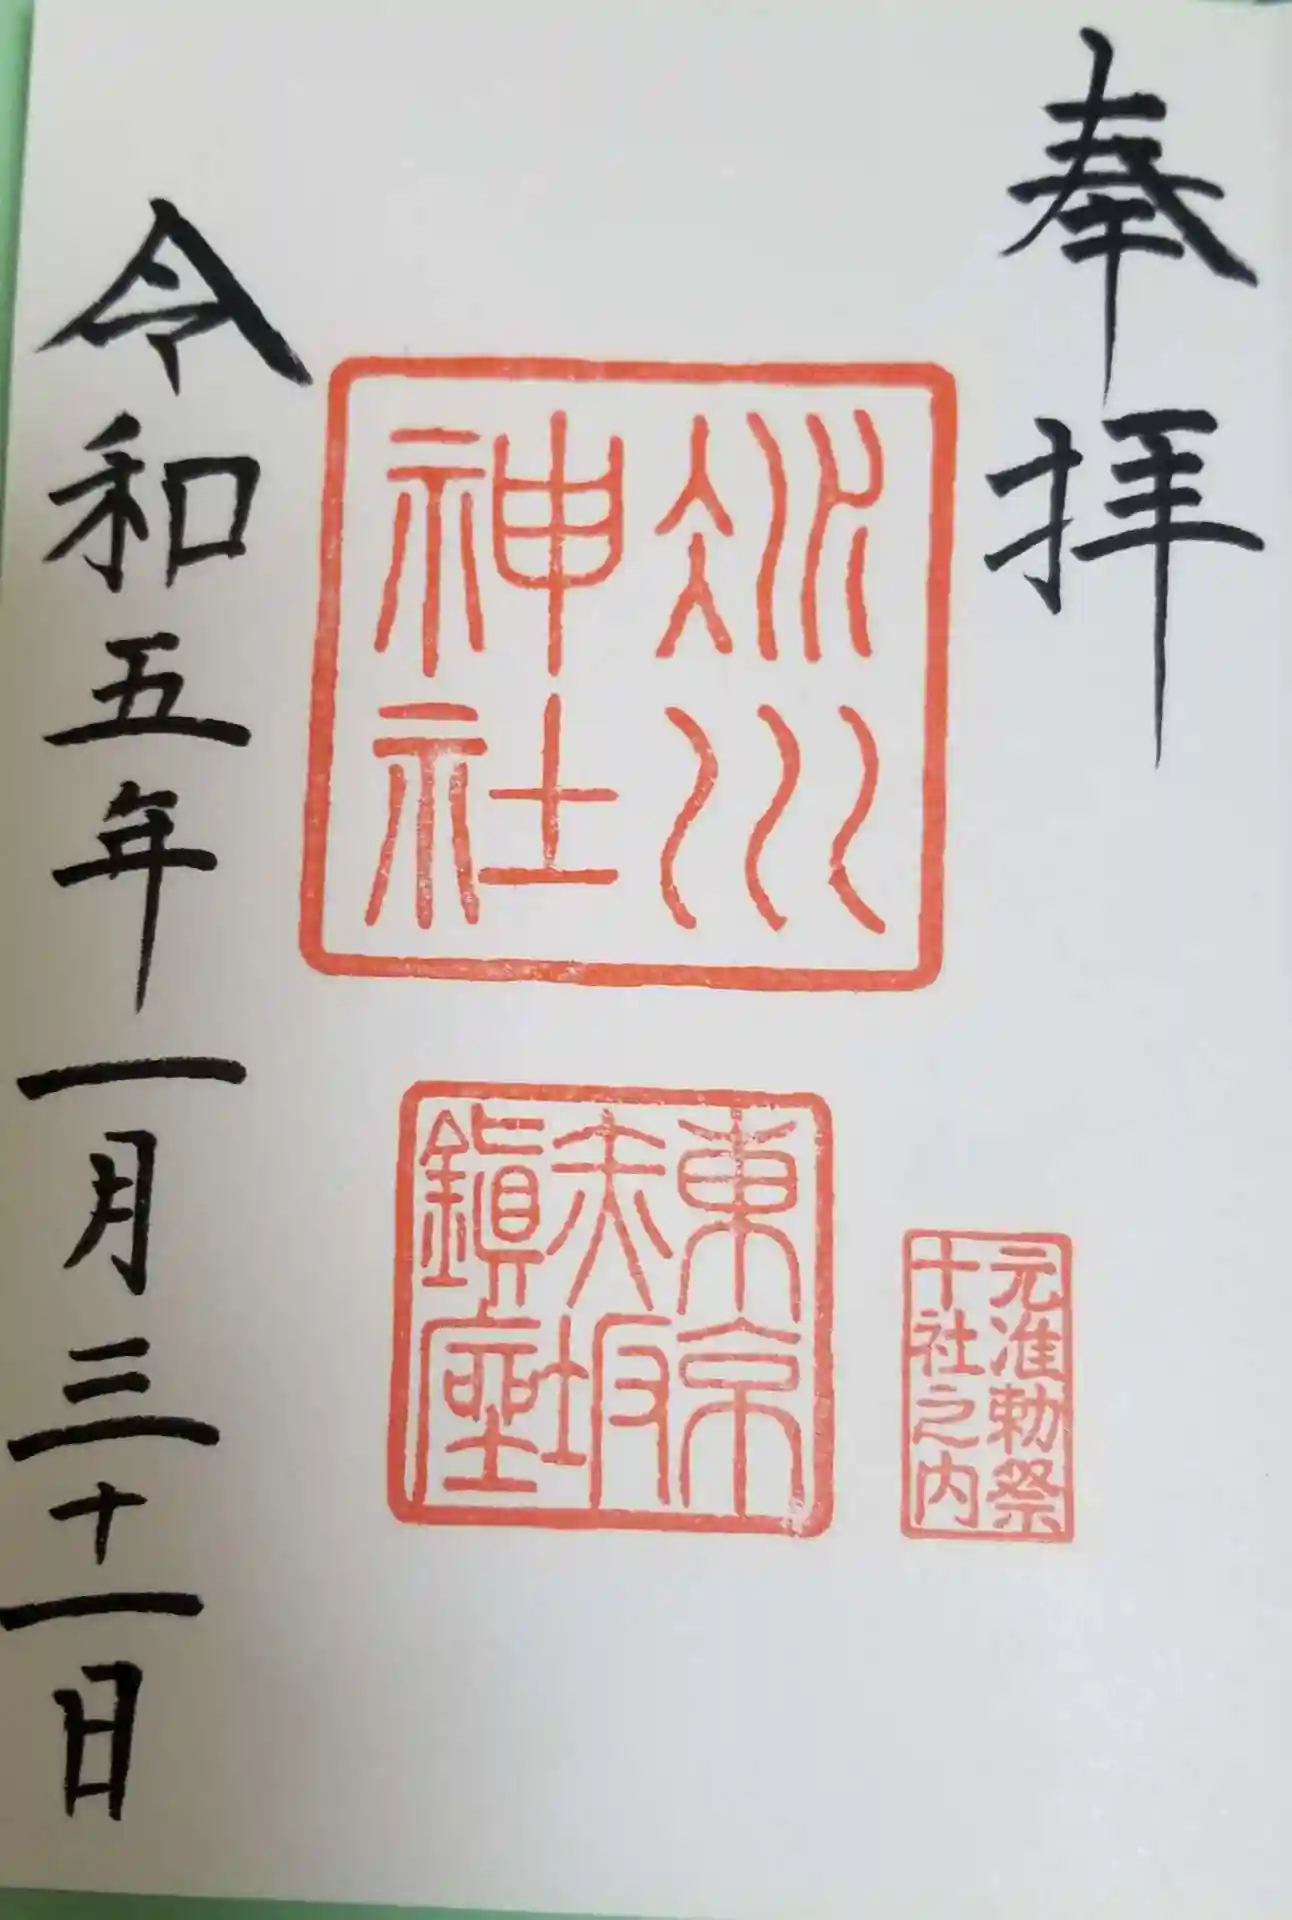 奉拝
氷川
神社
元准勅祭
十社之内
東京
赤坂
鎭座
令和五年一月三十一日